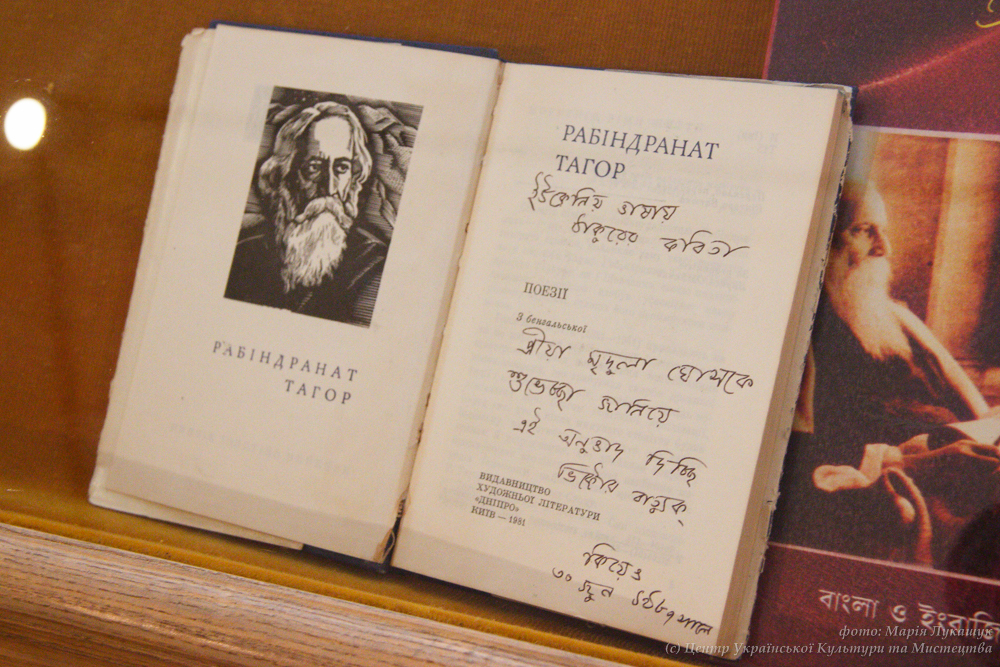 РАБІНДРАНАТ
ТАГОР
РАБІНДРАНАТ
ТАГОР
ইউক্রেনিয় ভাষায়
ঠাকুরের কবিতা
ПОЕЗІЇ
З бенгальської
প্রীয়া মৃদুলা ঘোষকে
শুভেচ্ছা জানিয়ে
এই অনুবাদ দিচ্ছি
ভিক্তোর
ВИДАВНИЦТВО
ХУДОЖНЬОЇ ЛІТЕРАТУРИ
«ДНІПРО»
КИЇВ — 1981
কিয়েভ
৩০ জুন সালে
বাংলা ও ইংরাজি
фото: Марія Лукащук
(с) Центр Української Культури та Мистецтва